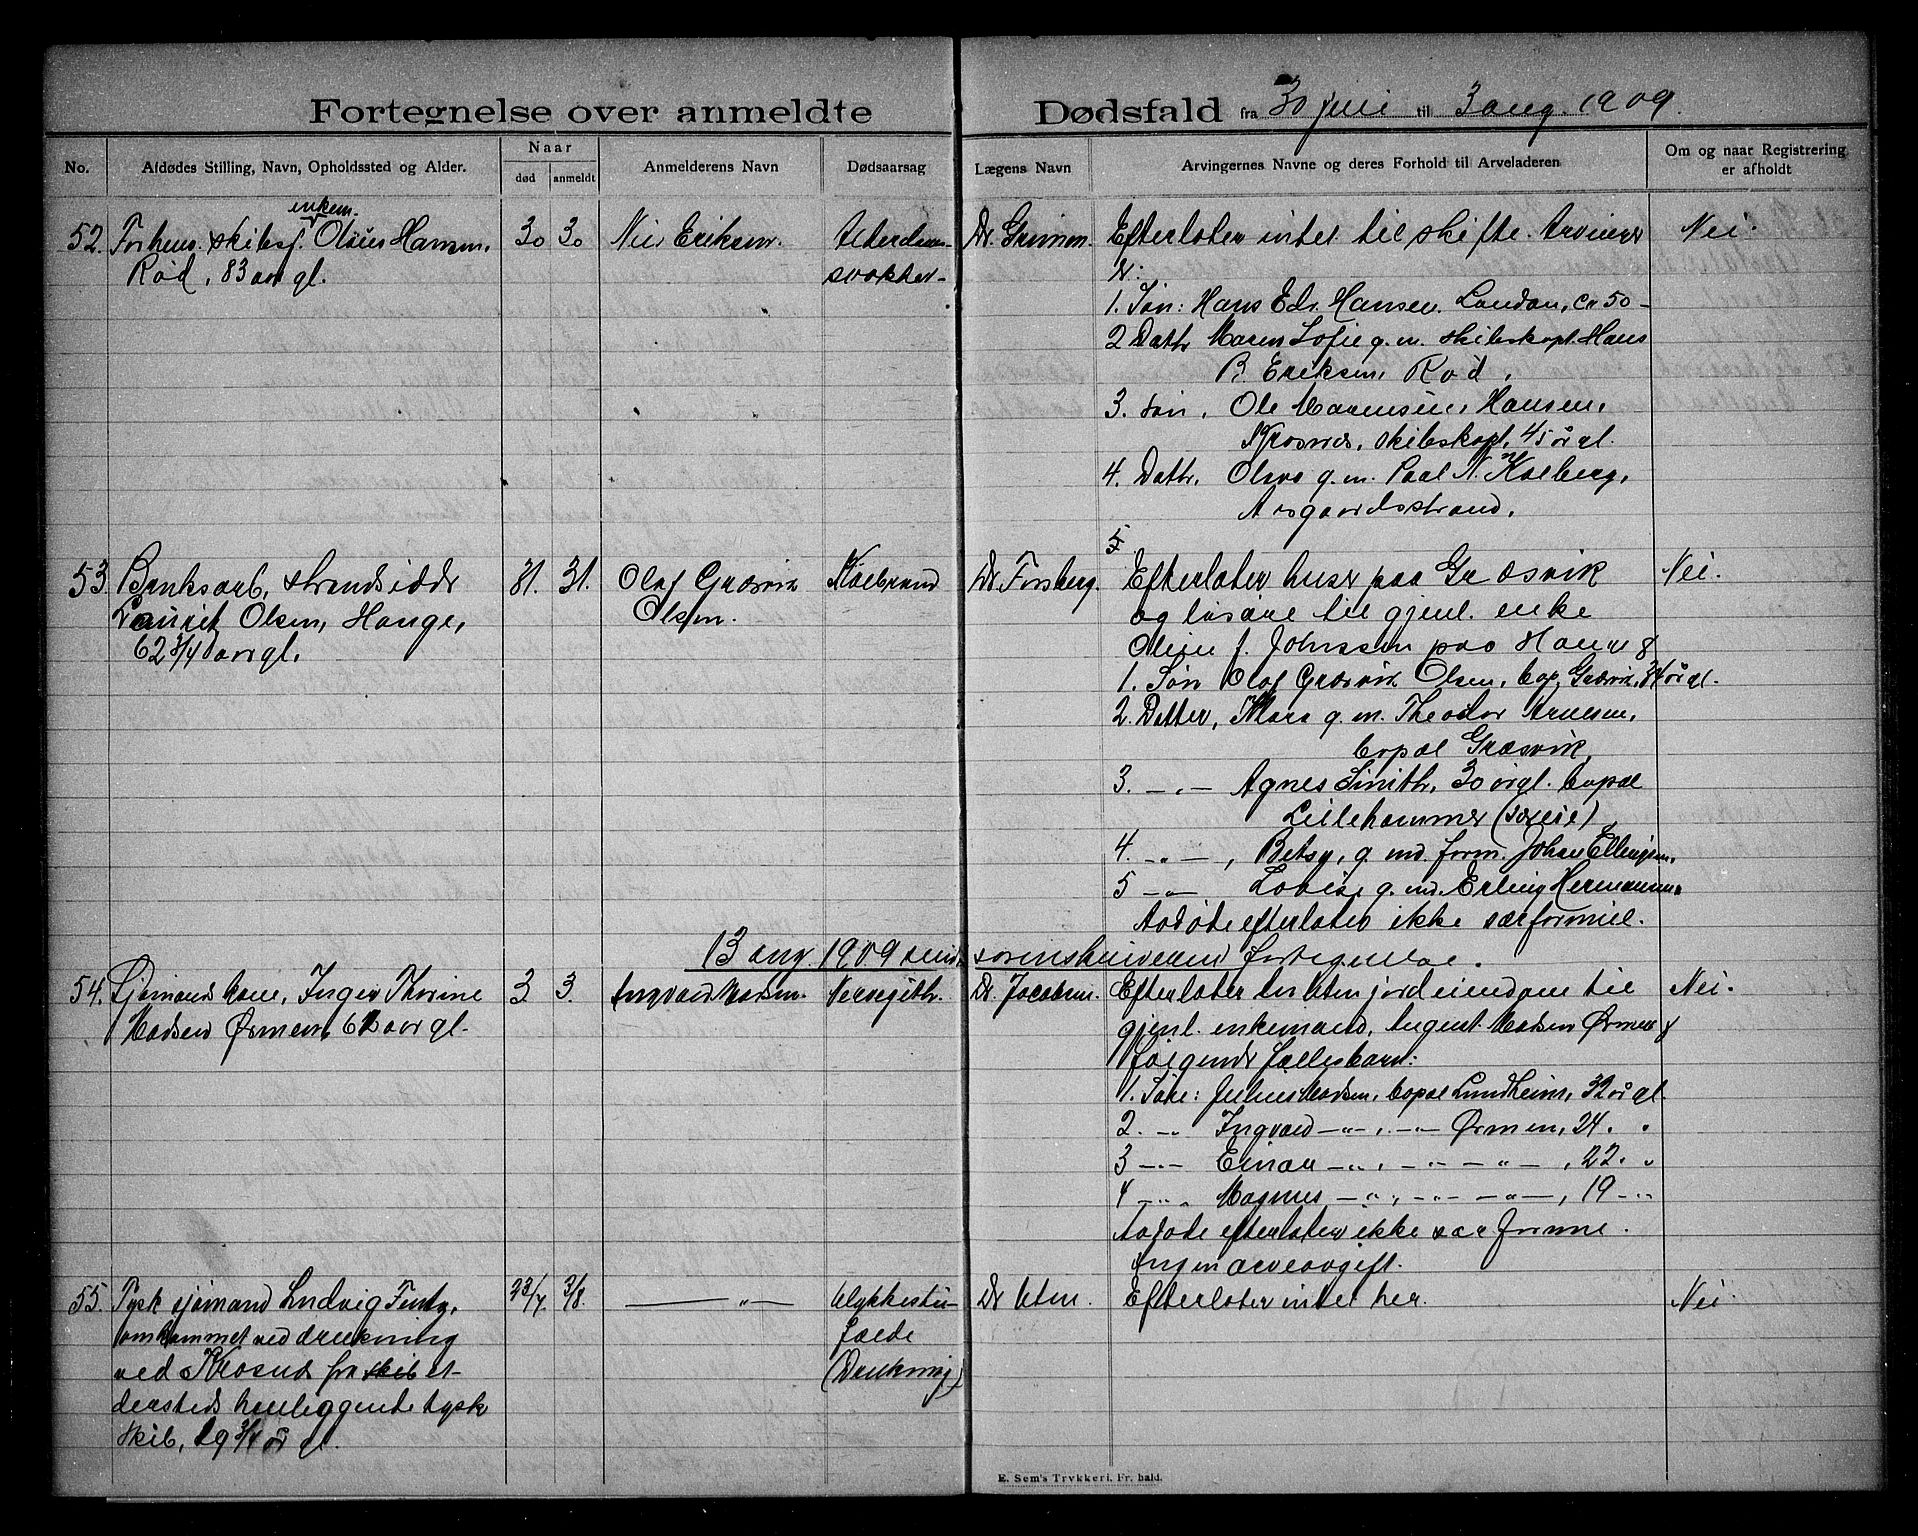 Fortegnelse over anmeldte Dødsfald fra 30 juli til 3 aug. 1909.
No.
Afdødes Stilling, Navn, Opholdssted og Alder.
Naar
død
anmeldt
Anmelderens Navn
Dødsaarsag
Lægens Navn
Arvingernes Navne og deres Forhold til Arveladeren
Om og naar Registrering
er afholdt
52.
enkem.
Forhenv. skibsf. Olaus Hansen,
Rød, 83 aar gl.
30
30
Eriksen.
Alderdoms-
svakhet
Dr.
Efterlater intet til skifte. Arvinger
er:
1. Søn: Hans Edv. Hansen. London, ca 50 -
2 Datter Maren Sofie g. m. skibskapt. Hans
B. Eriksen, Rød,
3. Søn, Ole Hansen,
Krosnæs, skibskapt, 45 år gl.
4. Dattr. Olava g. m. Paal N. Kolberg,
Aasgaardsstrand.
5.
Nei.
53
strandsidder
Lauritz Olsen, Hauge,
62 3/4 aar gl.
31.
31.
Olaf Græsvik
Olsen.
Koldbrand
Dr. Forsberg.
Efterlater huse paa Græsvik
og løsøre til gjenl. enke
Oline f. Johnssen paa Hauge &
1. Søn Olaf Græsvik Olsen, bop. Græsvik, 34 år gl.
2. Datter, Klara g. m. Theodor Arnesen,
bopæl Græsvik
3. —"— Agnes Smith, 30 år gl. bopæl
Lillehammer
4. —"—, Betsy, g. md. form. Johan Ellingsen.
5 —"— Lovise g. md. Erling Hermansen.
Avdøde efterlater ikke særformue.
Nei.
13 aug. 1909 sendt sorenskriveren fortegnelse.
54.
Sjømands kone, Inger Karine
Madsen Ørmen, aar gl.
3
3.
Ingvald Madsen.
Dr. Jacobsen.
Efterlater en liten jordeiendom til
gjenl. enkemand, August Madsen Ørmen &
følgende fællesbarn:
1. Søn: Julius Madsen, bopæl Lundheim, 32 år gl.
2. —"— Ingvald —"—, —"— Ørmen, 24. "
3 —"— Einar —"—, —"— —"—, 22. "
4 —"— Magnus —"—, —"— —"—, 19 —"—
Avdøde efterlater ikke sær formue.
Ingen arveavgift.
Nei.
55.
Tysk sjømand Ludvig
omkommet ved drukning
ved Krosnes fra skibet
dersteds henliggende tysk
skib, 19 3/4 år gl.
28/7
3/8.
—"—
Ulykkestil-
fælde
(Drukning)
Dr. Utne.
Efterlater intet her.
Nei.
E. Sem's Trykkeri, Fr.hald.